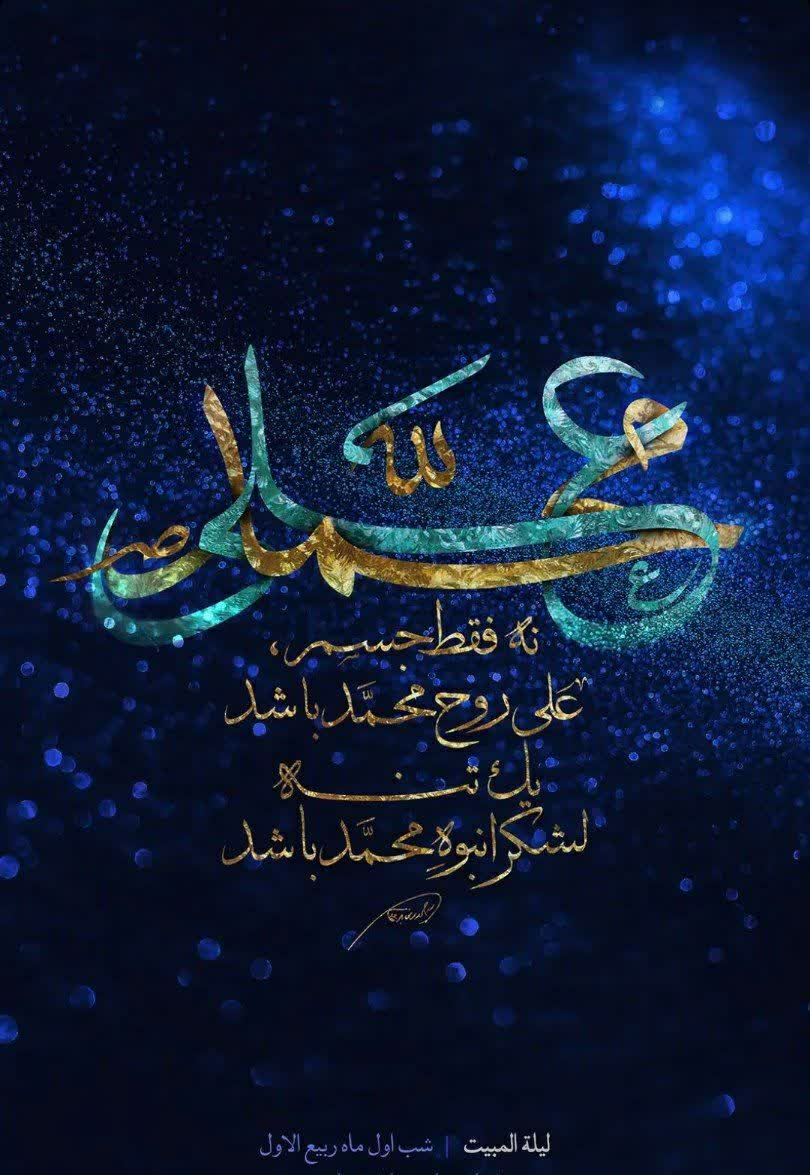 محمد علی
لله
ص
ع
نه فقط جسم،
عَلی روح محمَّد باشد
یك تنه
لشکر انبوهِ محمَّد باشد
لیلة المبیت | شب اول ماه ربیع الاول